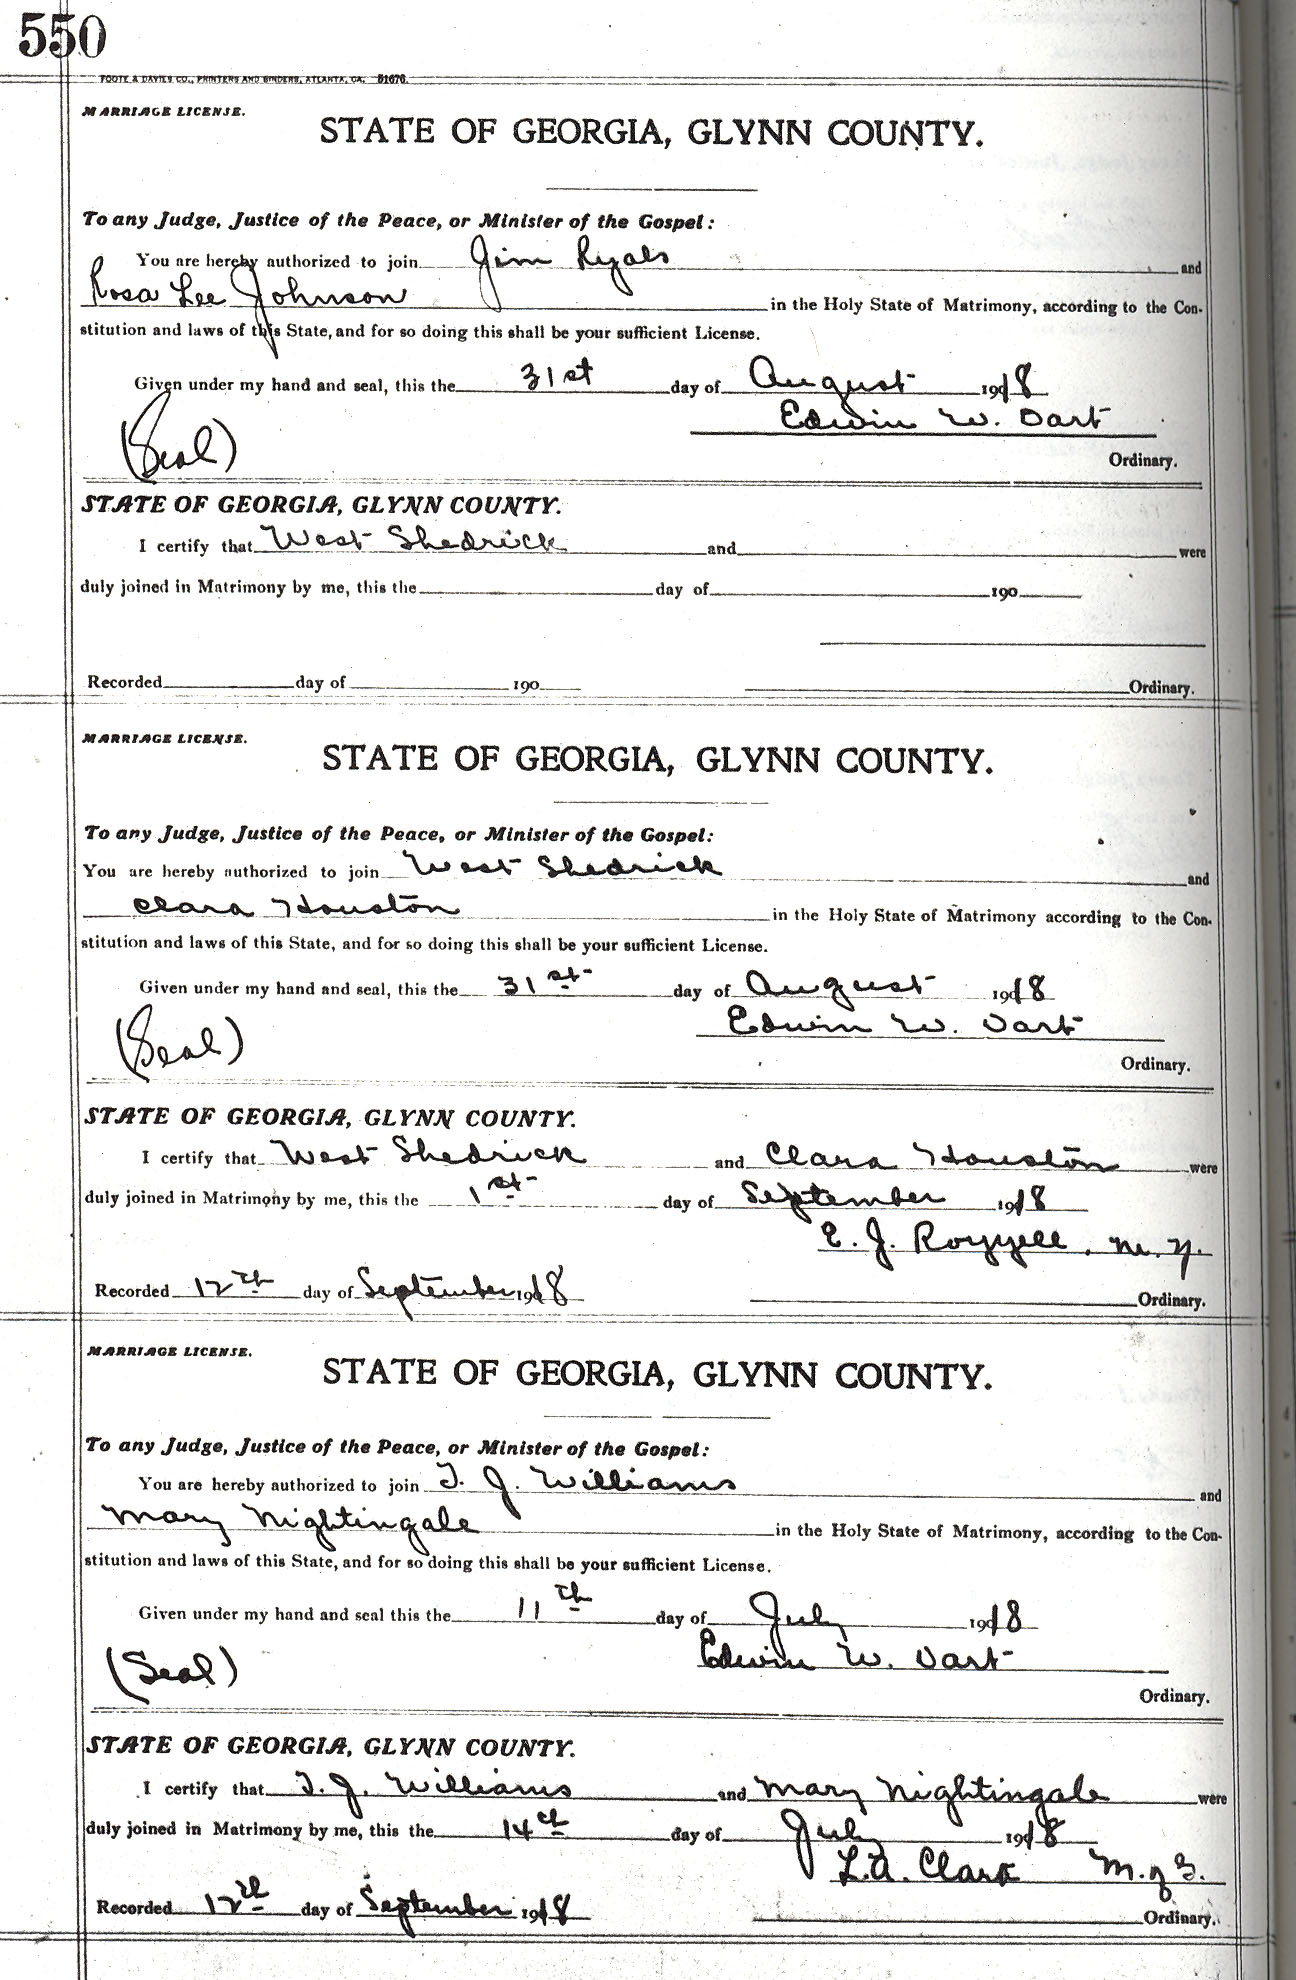 550
FOOTE & DAVIES CO., PRINTERS AND BINDERS, ATLANTA, GA. 51676
MARRIAGE LICENSE.
STATE OF GEORGIA, GLYNN COUNTY.
To any Judge, Justice of the Peace, or Minister of the Gospel:
You are hereby authorized to join Jim Ryals and
Rosa Lee Johnson in the Holy State of Matrimony, according to the Con-
stitution and laws of this State, and for so doing this shall be your sufficient License.
Given under my hand and seal, this the 31st day of August 1918
Edwin W. Dart
(Seal)
Ordinary.
STATE OF GEORGIA, GLYNN COUNTY.
I certify that West Shedrick and were
duly joined in Matrimony by me, this the day of 190
Recorded day of 190 Ordinary.
MARRIAGE LICENSE.
STATE OF GEORGIA, GLYNN COUNTY.
To any Judge, Justice of the Peace, or Minister of the Gospel:
You are hereby authorized to join West Shedrick and
Clara Houston in the Holy State of Matrimony according to the Con-
stitution and laws of this State, and for so doing this shall be your sufficient License.
Given under my hand and seal, this the 31st day of August 1918
Edwin W. Dart
(Seal)
Ordinary.
STATE OF GEORGIA, GLYNN COUNTY.
I certify that West Shedrick and Clara Houston were
duly joined in Matrimony by me, this the 1st day of September 1918
E. J.
Recorded 12th day of September 1918 Ordinary.
MARRIAGE LICENSE.
STATE OF GEORGIA, GLYNN COUNTY.
To any Judge, Justice of the Peace, or Minister of the Gospel:
You are hereby authorized to join T. J. Williams and
Mary Nightingale in the Holy State of Matrimony, according to the Con-
stitution and laws of this State, and for so doing this shall be your sufficient License.
Given under my hand and seal this the 11th day of July 1918
Edwin W. Dart
(Seal)
Ordinary.
STATE OF GEORGIA, GLYNN COUNTY.
I certify that T. J. Williams and Mary Nightingale were
duly joined in Matrimony by me, this the 14th day of July 1918
L.A. Clark M.G.
Recorded 12th day of September 1918 Ordinary.